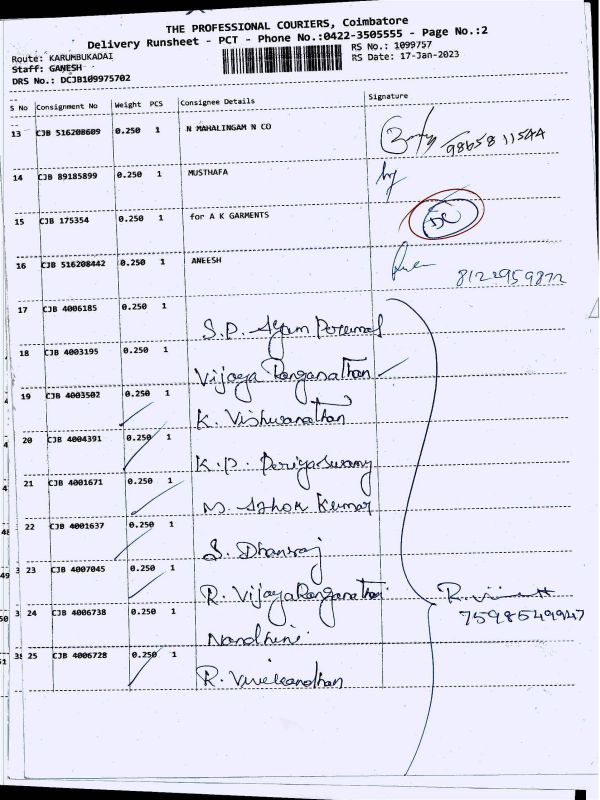 THE PROFESSIONAL COURIERS, Coimbatore
Delivery Runsheet - PCT - Phone No.:0422-3505555 - Page No.:2
Route: KARUMBUKADAI
RS No.: 1099757
Staff: GANESH
RS Date: 17-Jan-2023
DRS No.: DCJB109975702
S No Consignment No Weight PCS Consignee Details Signature
13 CJB 516208609 0.250 1 N MAHALINGAM N CO
9865811544
14 CJB 89185899 0.250 1 MUSTHAFA
15 CJB 175354 0.250 1 for A K GARMENTS
16 CJB 516208442 0.250 1 ANEESH
8122959872
17 CJB 4006185 0.250 1
S.P.
18 CJB 4003195 0.250 1
Vijaya Ranganathan
19 CJB 4003502 0.250 1
K. Vishwanathan
20 CJB 4004391 0.250 1
K.P. Periyaswamy
21 CJB 4001671 0.250 1
M. Ashok Kumar
22 CJB 4001637 0.250 1
S. Dhanraj
3 23 CJB 4007045 0.250 1
R. VijayaRanganathan
3 24 CJB 4006738 0.250 1
Nandhini
7598549947
25 CJB 4006728 0.250 1
R.